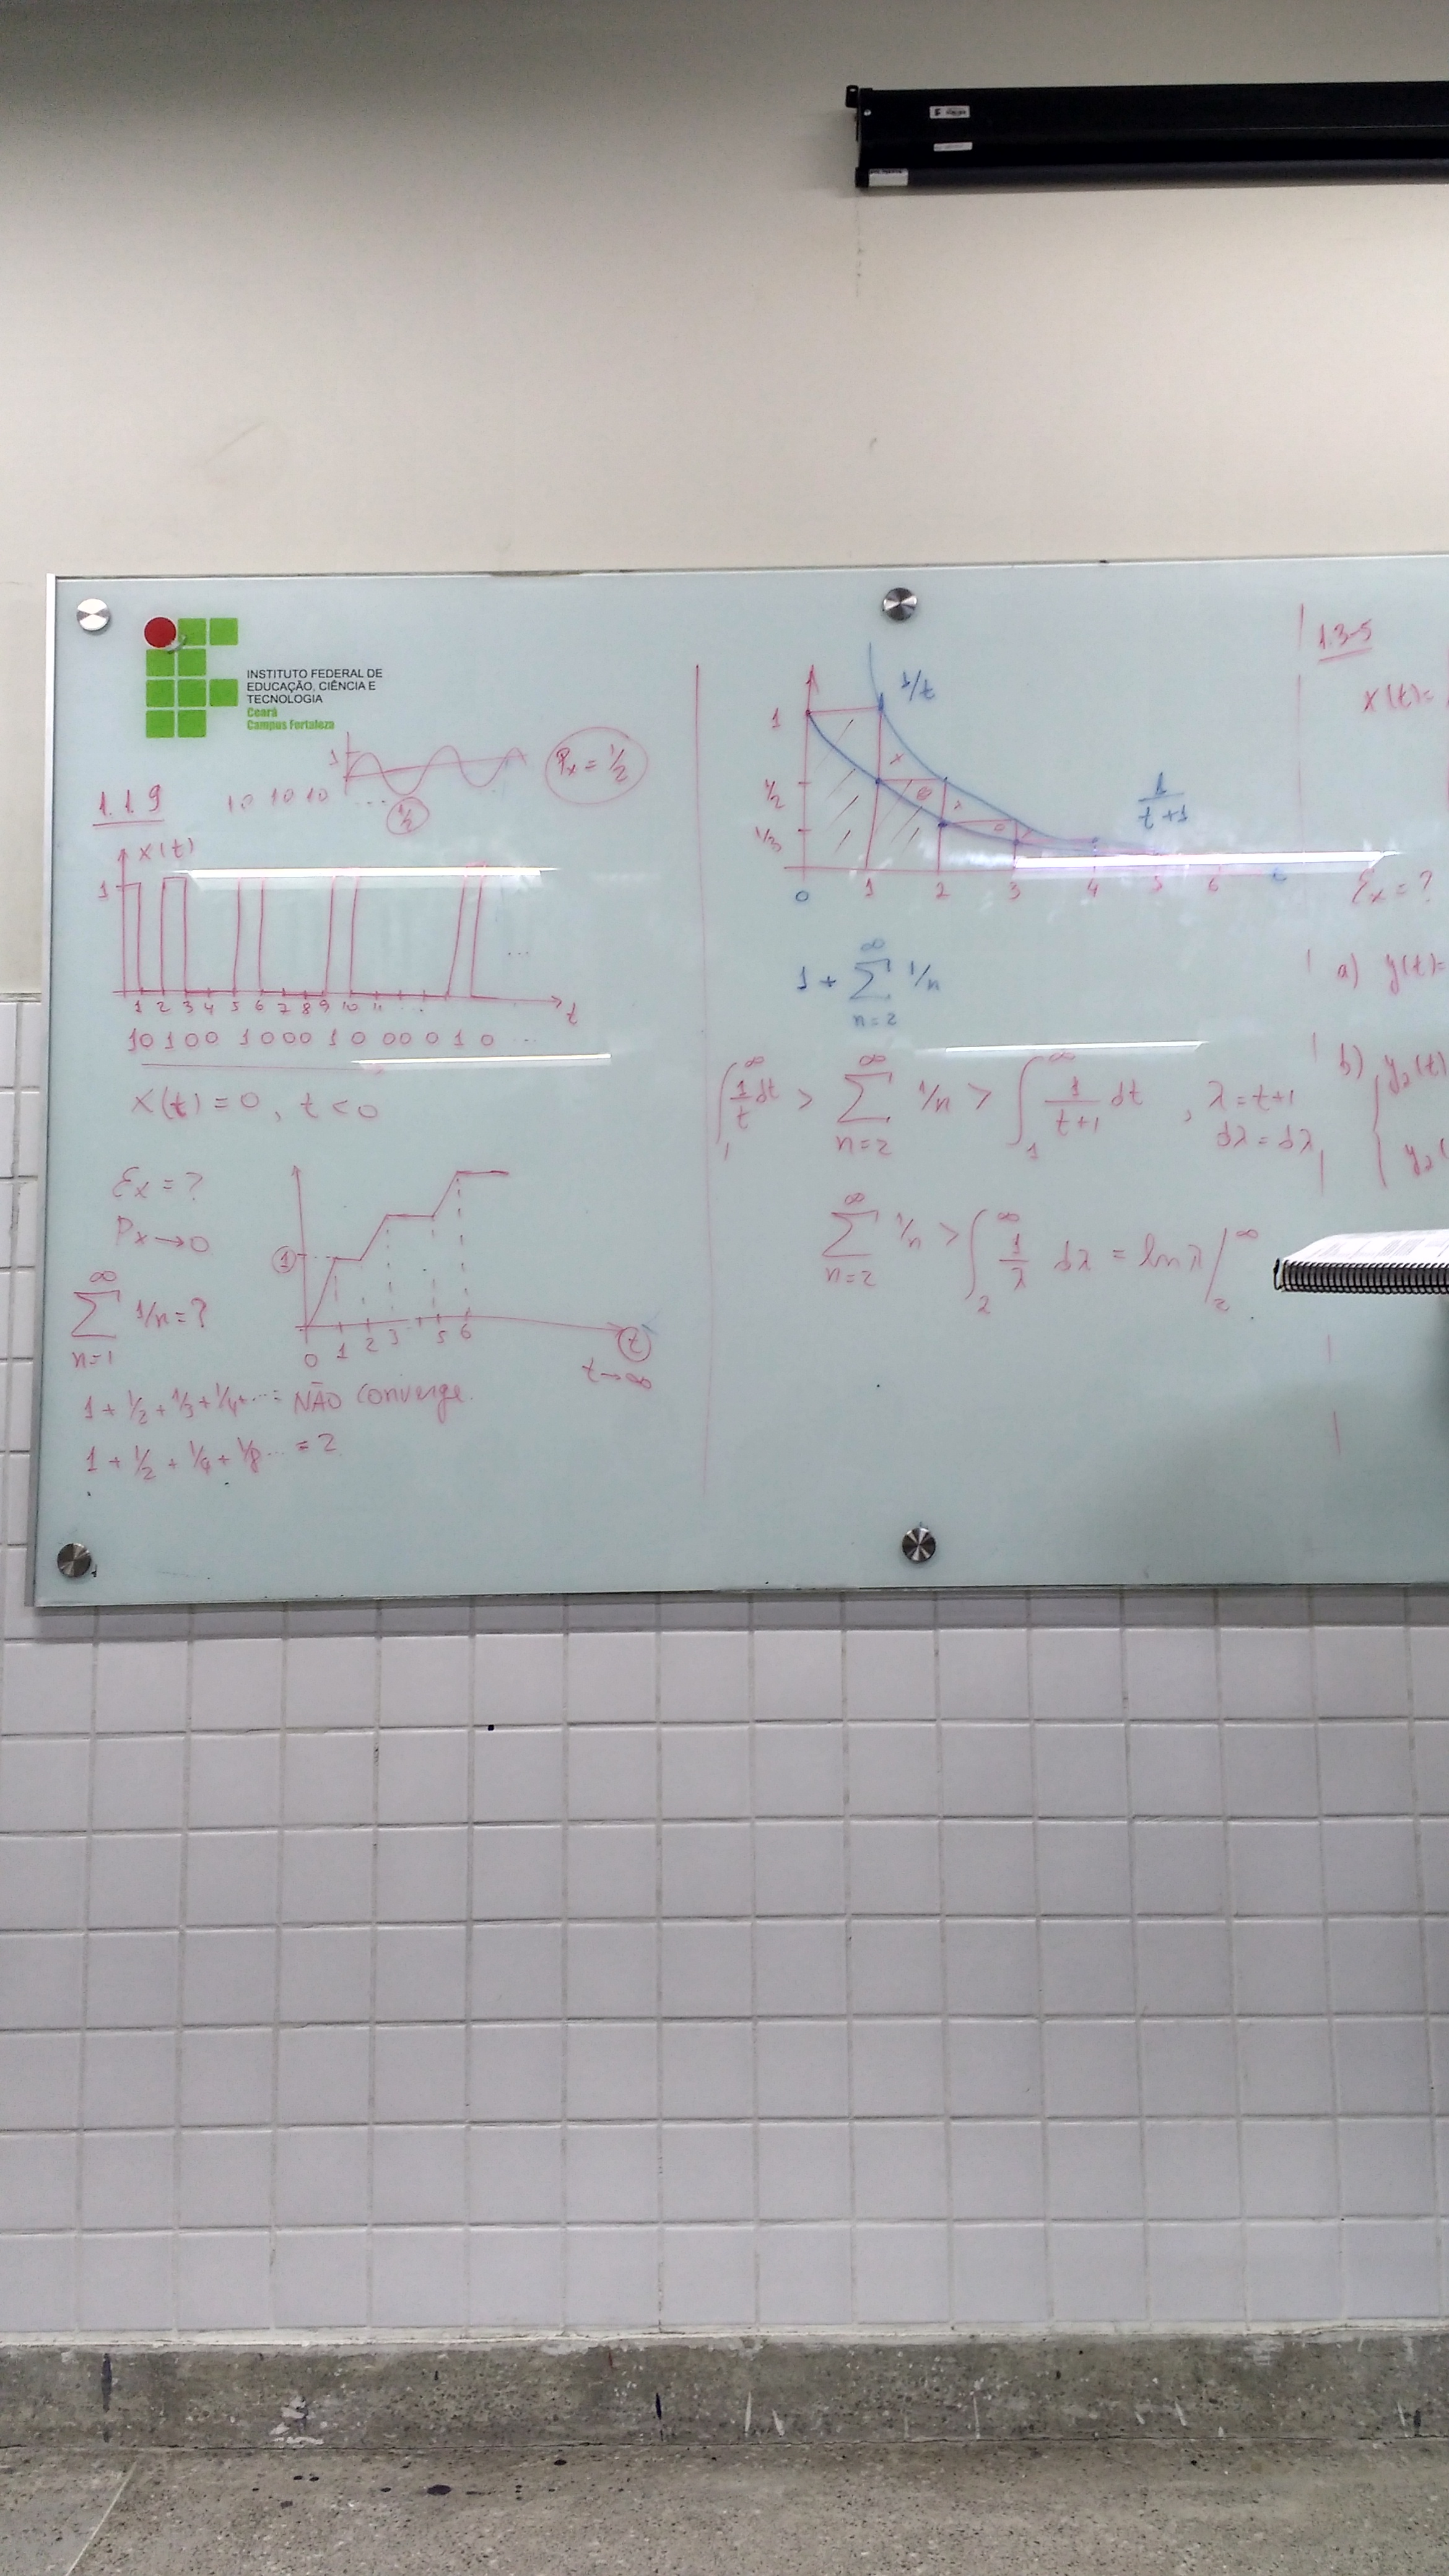 INSTITUTO FEDERAL DE
EDUCAÇÃO, CIÊNCIA E
TECNOLOGIA
Ceará
Campus Fortaleza
1.1.9
10 10 10 ...
1
1/2
Px = 1/2
x(t)
1
...
1 2 3 4 5 6 7 8 9 10 11 ...
t
10 100 1000 10 000 10 ...
x(t) = 0, t < 0
Ex = ?
Px → 0
∞
∑ 1/n = ?
n=1
1
0 1 2 3 5 6
t
t→∞
1 + 1/2 + 1/3 + 1/4 + ... = NÃO converge.
1 + 1/2 + 1/4 + 1/8 ... = 2
1/t
1
1/2
1/3
1
t+1
0 1 2 3 4 5 6
∞
1 + ∑ 1/n
n=2
∫₁^∞ 1/t dt > ∑_{n=2}^∞ 1/n > ∫₁^∞ 1/(t+1) dt , λ = t+1
dλ = dλ
∑_{n=2}^∞ 1/n > ∫₂^∞ 1/λ dλ = ln λ |₂^∞
1.3-5
x(t) =
Ex = ?
a) y(t) =
b) y₂(t)
y₂(